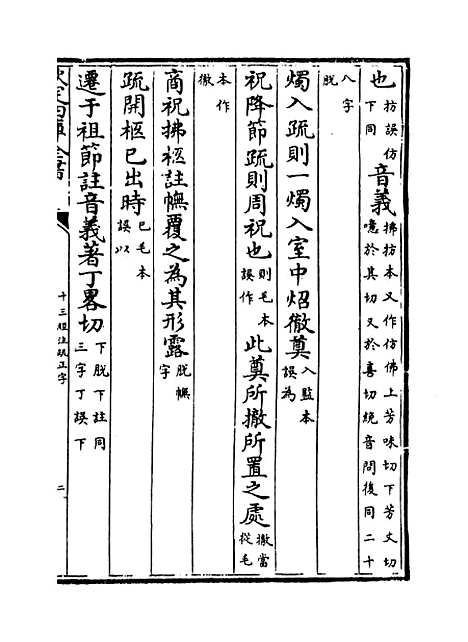 也扌方誤仿
下同
音義拂扌方本又作仿佛上芳味切下芳丈切
噫於其切又於喜切絻音問後同二十
八字
脱
燭入疏則一燭入室中炤徹奠入監本
誤為
祝降節疏則周祝也則毛本
誤作
此奠所撤所置之處撤當
從毛
本作
徹
商祝拂柩註幠覆之為其形露脱幠
字
疏開柩已出時已毛本
誤以
遷于祖節註音義著丁畧切下脱下註同
三字丁誤下
欽定四庫全書
十三經注疏正字
二